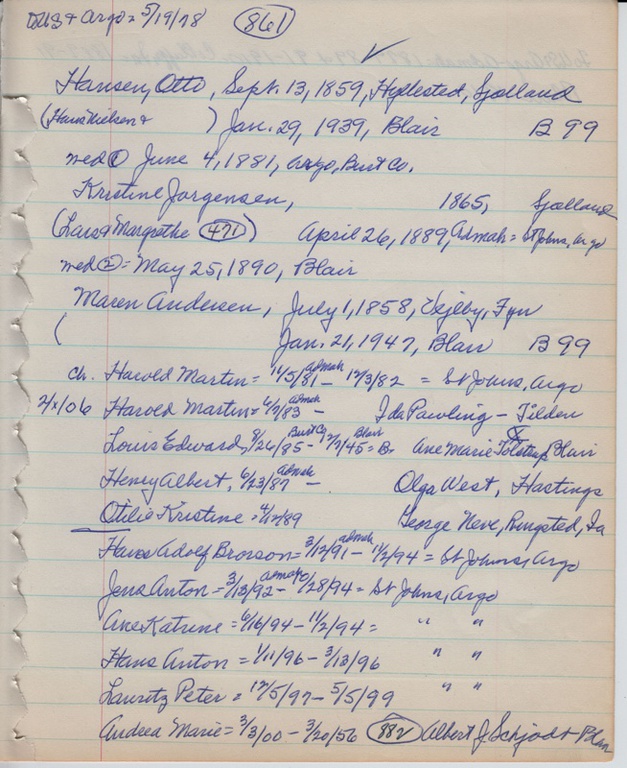 DUS + Argo = 5/19/78 861
Hansen, Otto, Sept. 13, 1859, Hyllested, Sjolland
(Hans Nielsen + ) Jan. 29, 1939, Blair B 99
med ① June 4, 1881, Argo, Burt Co.
Kristine Jorgensen, 1865, Sjolland
(Lars + Margrethe 471) April 26, 1889, Admah = St Johns, Argo
med ② = May 25, 1890, Blair
Maren Andersen, July 1, 1858, Vejlby, Fyn
( Jan. 21, 1947, Blair B 99
ch. Harold Martin = 11/5/81 admah - 12/3/82 = St Johns, Argo
Harold Martin = 6/7/83 admah - Ida Pawling - Tilden
Louis Edward, 8/26/85 Burt Co - 12/7/45 Blair = B. Ane Marie Tolstrup, Blair
Henry Albert, 6/23/87 admah - Olga West, Hastings
Otilie Kristine = 4/12/89 George Neve, Ringsted, Ia
Hans Adolf Brorson = 3/12/91 admah - 1/2/94 = St Johns, Argo
Jens Anton = 3/13/92 admah - 1/28/94 = St Johns, Argo
Ane Katrine = 6/16/94 - 11/2/94 = " "
Hans Anton = 1/11/96 - 3/13/96 " "
Lauritz Peter = 12/5/97 - 5/5/99 " "
Andrea Marie = 3/3/00 - 3/20/56 882 Albert J. Schjodt Blair